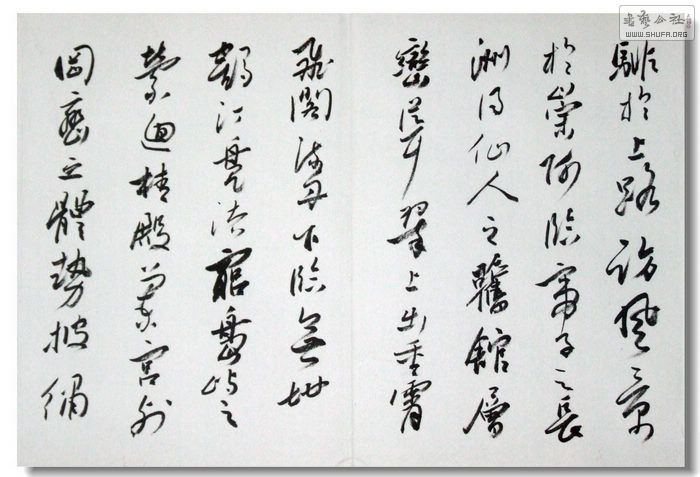 書藝公社
WWW.SHUFA.ORG
騑於上路訪風景
於崇阿臨帝子之長
洲得仙人之舊館層
巒聳翠上出重霄
飛閣流丹下臨無地
鶴汀鳧渚窮島嶼之
縈迴桂殿蘭宮列
岡巒之體勢披繡